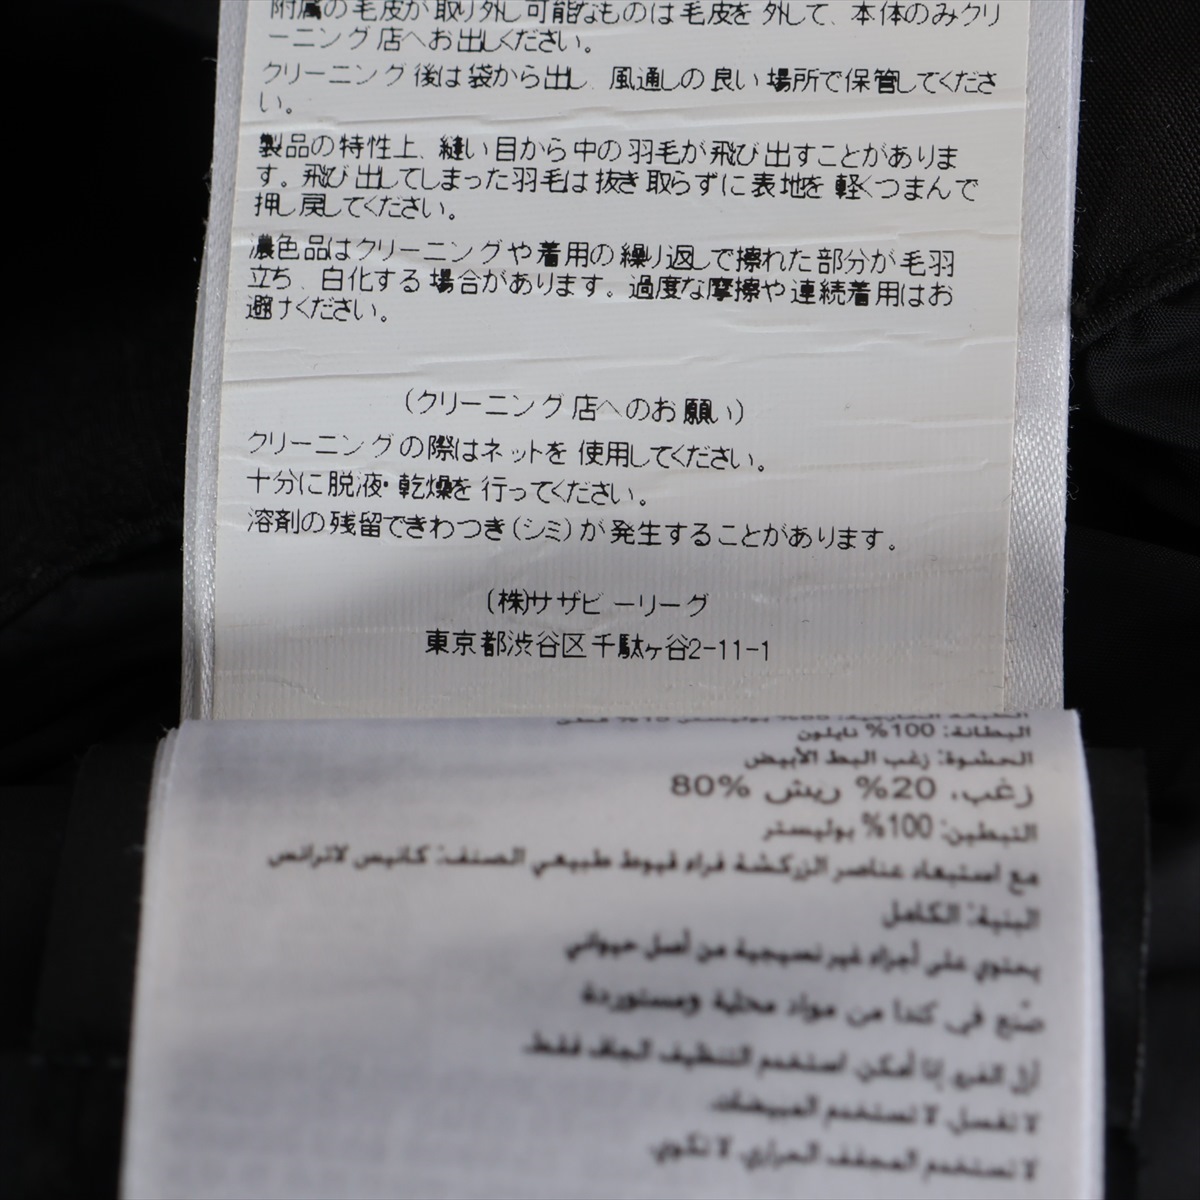 附属の毛皮が取り外し可能なものは毛皮を外して、本体のみクリ
ーニング店へお出しください。
クリーニング後は袋から出し、風通しの良い場所で保管してくださ
い。
製品の特性上、縫い目から中の羽毛が飛び出すことがありま
す。飛び出してしまった羽毛は抜き取らずに表地を軽くつまんで
押し戻してください。
濃色品はクリーニングや着用の繰り返しで擦れた部分が毛羽
立ち、白化する場合があります。過度な摩擦や連続着用はお
避けください。
(クリーニング店へのお願い)
クリーニングの際はネットを使用してください。
十分に脱液・乾燥を行ってください。
溶剤の残留できわつき(シミ)が発生することがあります。
(株)サザビーリーグ
東京都渋谷区千駄ヶ谷2-11-1
البطانة: 100% نايلون
الحشوة: زغب البط الأبيض
80% زغب، 20% ريش
التبطين: 100% بوليستر
مع استبعاد عناصر الزركشة فراء قيوط طبيعي الصنف: كانيس لاترانس
البنية: الكامل
يحتوي على أجزاء غير نسيجية من أصل حيواني
صُنع في كندا من مواد محلية ومستوردة
أزل الفرو إذا أمكن. استخدم التنظيف الجاف فقط.
لا تغسل. لا تستخدم المبيضات.
لا تستخدم المجفف الحراري. لا تكوي.